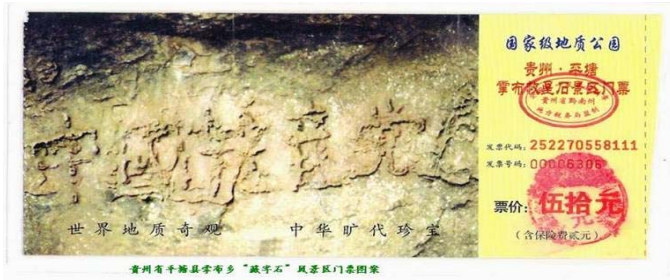 世界地质奇观 中华旷代珍宝
国家级地质公园
贵州·平塘
门票
贵州省黔南州
发票代码：252270558111
发票号码：00006306
票价：伍拾元
（含保险费贰元）
贵州省平塘县掌布乡“藏字石”风景区门票图案